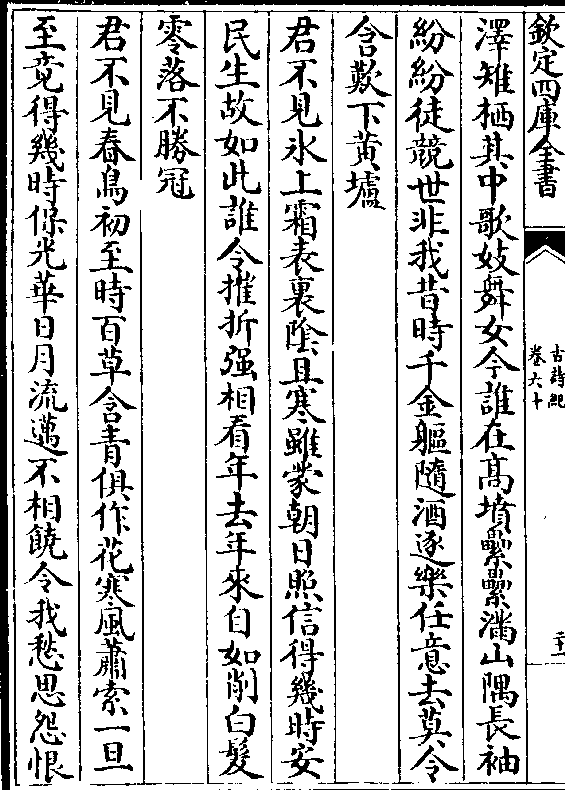 欽定四庫全書
古詩紀
卷六十
二十一
澤雉栖其中歌妓舞女今誰在髙墳纍纍滿山隅長袖
紛紛徒競世非我昔時千金軀隨酒逐樂任意去莫令
含歎下黄壚
君不見氷上霜表裏隂且寒雖蒙朝日照信得幾時安
民生故如此誰令摧折强相看年去年來自如削白髮
零落不勝冠
君不見春鳥初至時百草含青俱作花寒風蕭索一旦
至竟得幾時保光華日月流邁不相饒令我愁思怨恨